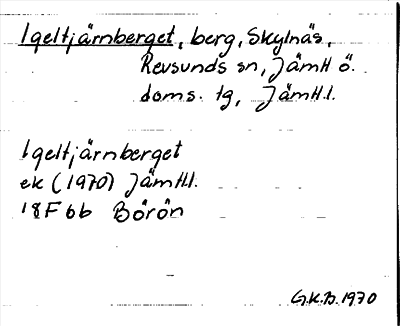 Igeltjärnberget, berg, Skylnäs,
Revsunds sn, Jämtl ö.
doms. tg, Jämtl.l.
Igeltjärnberget
ek (1970) Jämtl.l.
18F 6b Börön
G.K.B. 1970